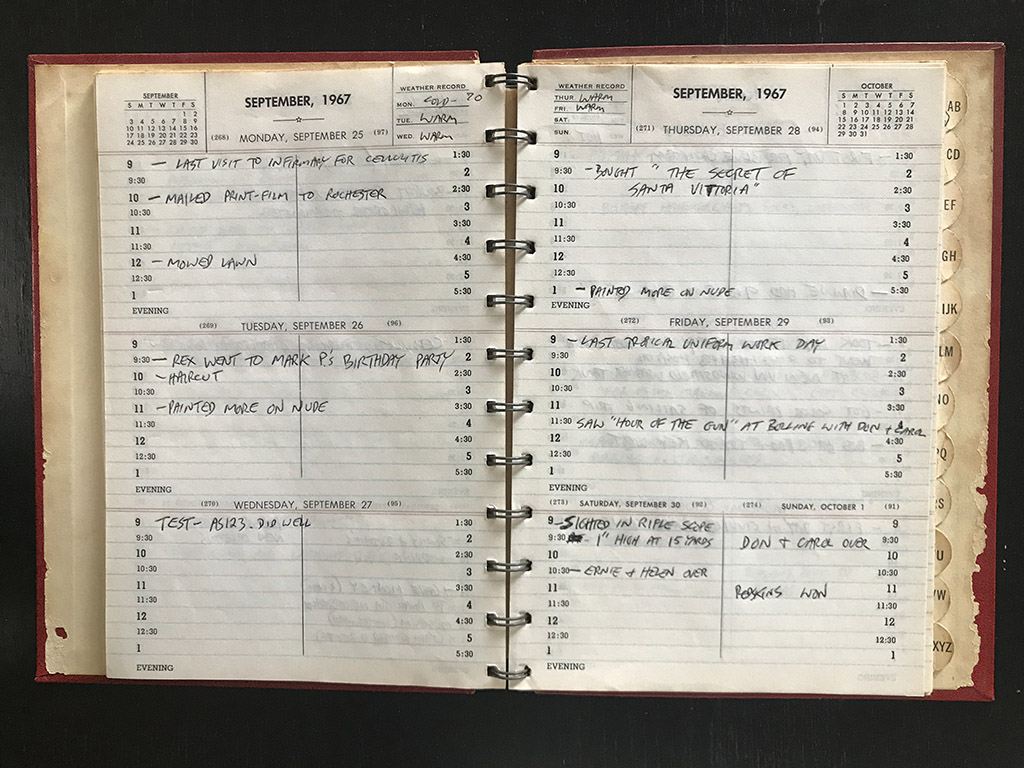 SEPTEMBER
S M T W T F S
1 2
3 4 5 6 7 8 9
10 11 12 13 14 15 16
17 18 19 20 21 22 23
24 25 26 27 28 29 30
SEPTEMBER, 1967
WEATHER RECORD
MON. COLD - 70
TUE. WARM
WED. WARM
(268) MONDAY, SEPTEMBER 25 (97)
9 - LAST VISIT TO INFIRMARY FOR CELLULITIS 1:30
9:30 2
10 - MAILED PRINT-FILM TO ROCHESTER 2:30
10:30 3
11 3:30
11:30 4
12 - MOWED LAWN 4:30
12:30 5
1 5:30
EVENING
(269) TUESDAY, SEPTEMBER 26 (96)
9 1:30
9:30 - REX WENT TO MARK P'S BIRTHDAY PARTY 2
10 - HAIRCUT 2:30
10:30 3
11 - PAINTED MORE ON NUDE 3:30
11:30 4
12 4:30
12:30 5
1 5:30
EVENING
(270) WEDNESDAY, SEPTEMBER 27 (95)
9 TEST - AS123. DID WELL 1:30
9:30 2
10 2:30
10:30 3
11 3:30
11:30 4
12 4:30
12:30 5
1 5:30
EVENING
WEATHER RECORD
THUR WARM
FRI. WARM
SAT.
SUN.
SEPTEMBER, 1967
OCTOBER
S M T W T F S
1 2 3 4 5 6 7
8 9 10 11 12 13 14
15 16 17 18 19 20 21
22 23 24 25 26 27 28
29 30 31
(271) THURSDAY, SEPTEMBER 28 (94)
9 1:30
9:30 - BOUGHT "THE SECRET OF 2
10 SANTA VITTORIA" 2:30
10:30 3
11 3:30
11:30 4
12 4:30
12:30 5
1 - PAINTED MORE ON NUDE 5:30
EVENING
(272) FRIDAY, SEPTEMBER 29 (93)
9 - LAST TROPICAL UNIFORM WORK DAY 1:30
9:30 2
10 2:30
10:30 3
11 3:30
11:30 SAW "HOUR OF THE GUN" AT BOLLING WITH DON + CAROL
12 4:30
12:30 5
1 5:30
EVENING
(273) SATURDAY, SEPTEMBER 30 (92) (274) SUNDAY, OCTOBER 1 (91)
9 - SIGHTED IN RIFLE SCOPE 9
9:30 - 1" HIGH AT 15 YARDS DON + CAROL OVER 9:30
10 10
10:30 - ERNIE + HELEN OVER 10:30
11 REDSKINS WON 11
11:30 11:30
12 12
12:30 12:30
1 1
EVENING
AB
CD
EF
GH
IJK
LM
NO
PQ
RS
U
VW
XYZ